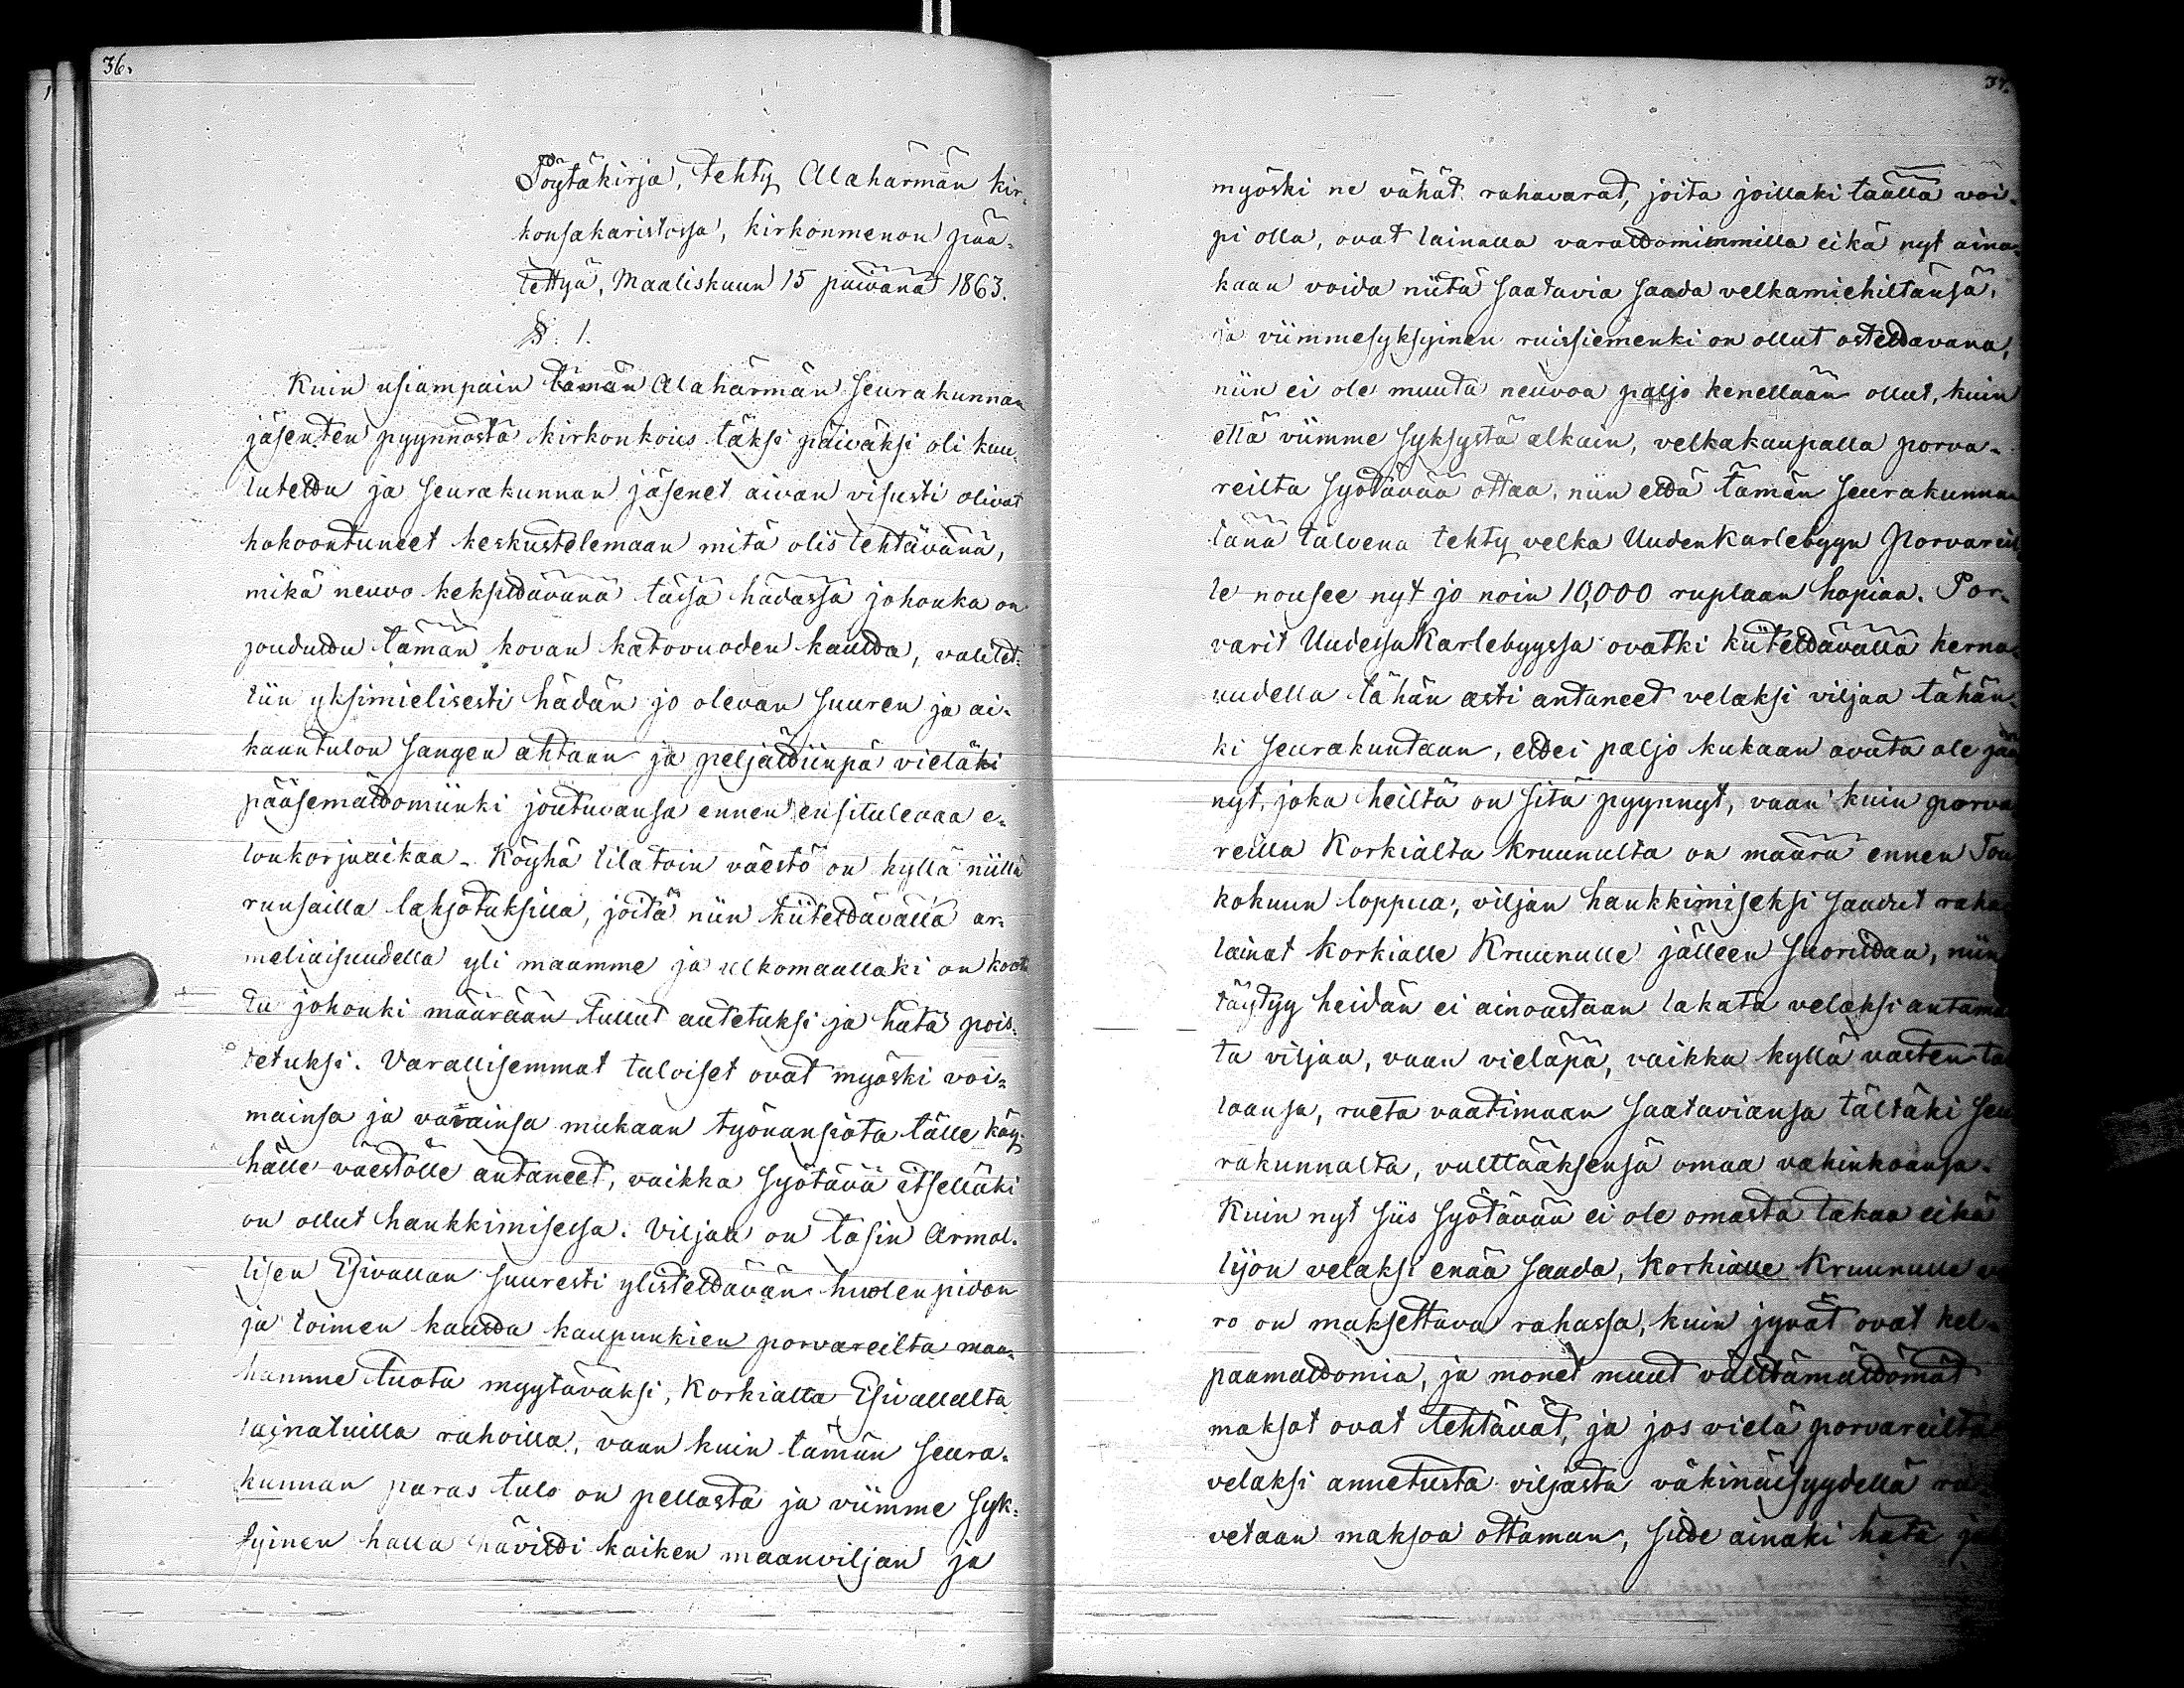 36.
Pöytäkirja, tehty Alahärmän kir-
konsakaristossa, kirkonmenon pää-
tettyä, Maaliskuun 15 päivänä 1863.
§. 1.
Kuin usiampain tämän Alahärmän seurakunnan
jäsenten pyynnöstä kirkonkous täksi päiväksi oli kuu-
luteldu ja seurakunnan jäsenet aivan visusti olivat
kokoontuneet keskustelemaan mitä olis tehtävänä,
mikä neuvo keksildävänä täsä hädässä johonka on
jouduldu tämän kovan katovuoden kaulda, valitet-
tiin yksimielisesti hädän jo olevan suuren ja ai-
kaantulon sangen ahtaan ja peljäldiinpä vieläki
pääsemäldömiinki joutuvansa ennen ensitulevaa e-
lonkorjuaikaa. Köyhä tilatoin väestö on kyllä niillä
runsailla lahjotuksilla, joita niin kiiteldävällä ar-
meliaisuudella yli maamme ja ulkomaallaki on koot-
tu johonki määrään tullut autetuksi ja hätä pois-
tetuksi. Varallisemmat taloiset ovat myöski voi-
mainsa ja varainsa mukaan työnansiota tälle köy-
hälle väestölle antaneet, vaikka syötävä itselläki
on ollut hankkimisessa. Viljaa on tosin Armol-
lisen Esivallan suuresti ylisteldävän huolenpidon
ja toimen kaulda kaupunkien porvareilta maa-
hamme tuotu myytäväksi, Korkialta Esivallalta
lainatuilla rahoilla, vaan kuin tämän seura-
kunnan paras tulo on pellosta ja viimme syk-
syinen halla hävildi kaiken maanviljan ja
37.
myöski ne vähät rahavarat, joita joillaki täällä voi-
pi olla, ovat lainalla varaldomimmilla eikä nyt aina-
kaan voida niitä saatavia saada velkamiehiltänsä,
ja viimmesyksyinen ruissiemenki on ollut osteldavana,
niin ei ole muuta neuvoa paljo kenellään ollut, kuin
että viimme syksystä alkain, velkakaupalla porva-
reilta syötävää ottaa, niin eldä tämän seurakunnan
tänä talvena tehty velka Uudenkarlebyyn Porvareil
le nousee nyt jo noin 10,000 ruplaan hopiaa. Por-
varit UudessaKarlebyyssa ovatki kiiteldävällä kerna-
uudella tähän asti antaneet velaksi viljaa tähän-
ki seurakuntaan, eldei paljo kukaan avuta ole jää
nyt, joka heiltä on sitä pyynnyt, vaan kuin porva
reilla Korkialta kruunulta on määrä ennen Tou
kokuun loppua, viljan hankkimiseksi saadut raha
lainat Korkialle Kruunulle jälleen suorildaa, niin
täytyy heidän ei ainoastaan lakata velaksi antama
ta viljaa, vaan vieläpä, vaikka kyllä vasten ta
toansa, rueta vaatimaan saataviansa tältäki seu
rakunnalta, välttääksensä omaa vahinkoansa.
Kuin nyt siis syötävää ei ole omasta takaa eikä
lijon velaksi enää saada, Korkialle Kruunulle ve
ro on maksettava rahassa, kuin jyvät ovat kel-
paamaldomia, ja monet muut välldämäldömät
maksot ovat tehtävät, ja jos vielä porvareilta
velaksi annetusta viljastaväkinäisyydellä ru
vetaan maksoa ottaman, silde ainaki hätä